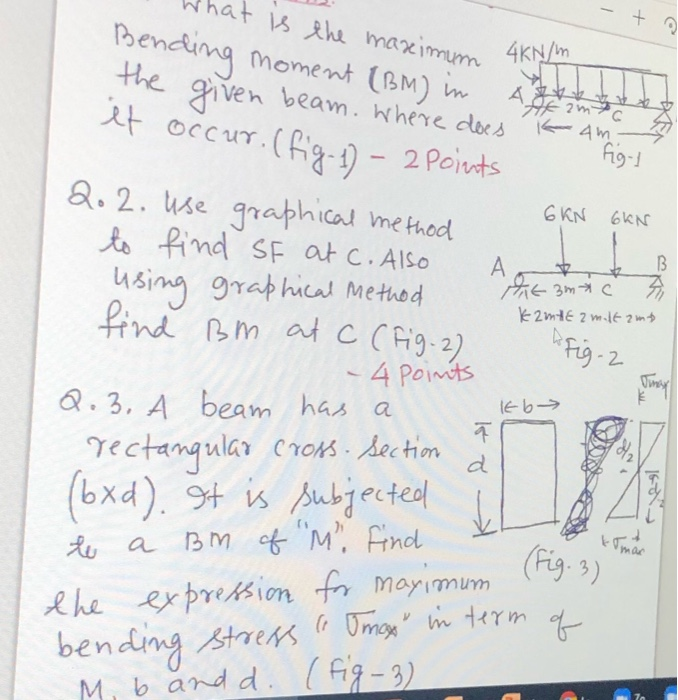 What is the maximum
Bending moment (BM) in
the given beam. Where does
it occur. (fig-1) - 2 Points
4KN/m
A
C
2m
4m
Fig-1
Q.2. Use graphical method
to find SF at C. Also
using graphical Method
find BM at C (Fig-2)
- 4 Points
6KN 6KN
A
B
3m C
2m 2m 2m
Fig-2
Q.3. A beam has a
rectangular cross-section
(bxd). It is subjected
to a BM of "M". Find
the expression for maximum
bending stress "σmax" in term of
M, b and d. (Fig-3)
b
d
σmax
d/2
d/2
σmax
(Fig.3)